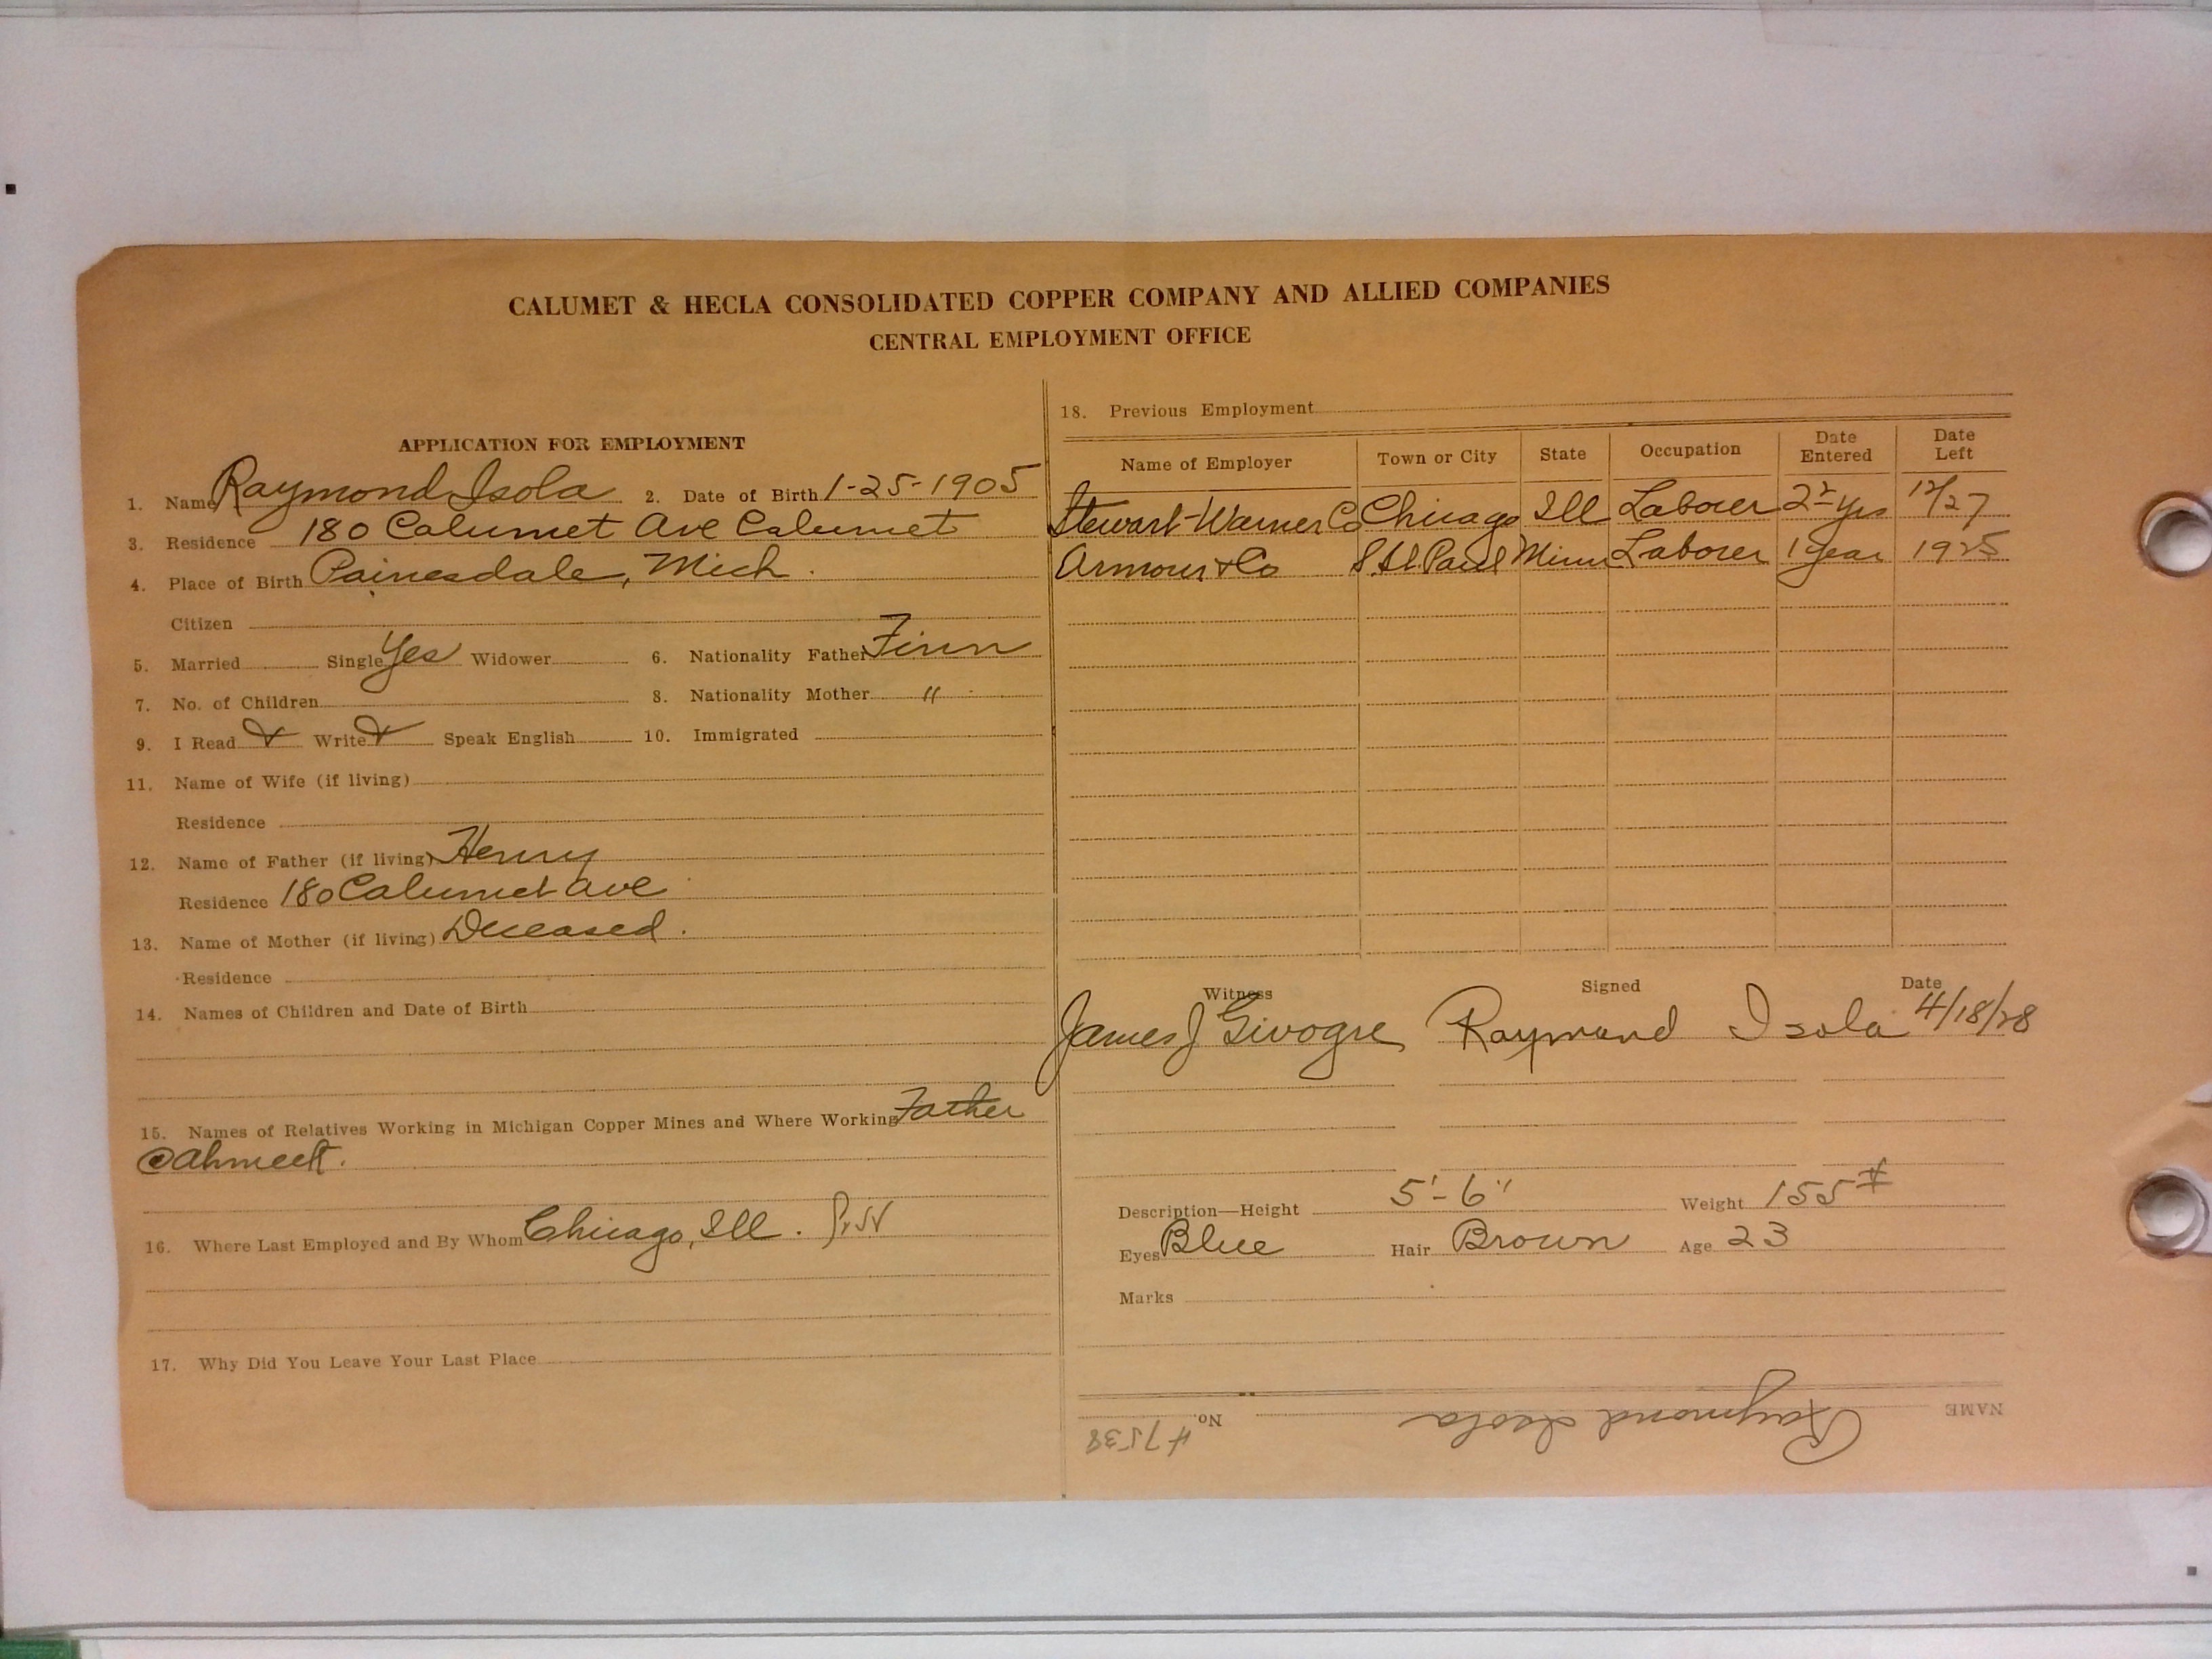 CALUMET & HECLA CONSOLIDATED COPPER COMPANY AND ALLIED COMPANIES
CENTRAL EMPLOYMENT OFFICE
APPLICATION FOR EMPLOYMENT
1. Name Raymond Isola 2. Date of Birth 1-25-1905
3. Residence 180 Calumet Ave Calumet
4. Place of Birth Painesdale, Mich.
Citizen
5. Married Single Yes Widower 6. Nationality Father Finn
7. No. of Children 8. Nationality Mother "
9. I Read Write Speak English 10. Immigrated
11. Name of Wife (if living)
Residence
12. Name of Father (if living) Henry
Residence 180 Calumet Ave
13. Name of Mother (if living) Deceased.
Residence
14. Names of Children and Date of Birth
15. Names of Relatives Working in Michigan Copper Mines and Where Working Father
@ Ahmeek.
16. Where Last Employed and By Whom Chicago, Ill.
17. Why Did You Leave Your Last Place
18. Previous Employment
Name of Employer Town or City State Occupation Date Entered Date Left
Stewart-Warner Co Chicago Ill Laborer 2 yrs 12/27
Armour & Co S. St. Paul Minn Laborer 1 year 1925
Witness Signed Date
James J Raymond Isola 4/18/28
Description—Height 5'-6" Weight 155 #
Eyes Blue Hair Brown Age 23
Marks
NAME Raymond Isola No. #7538